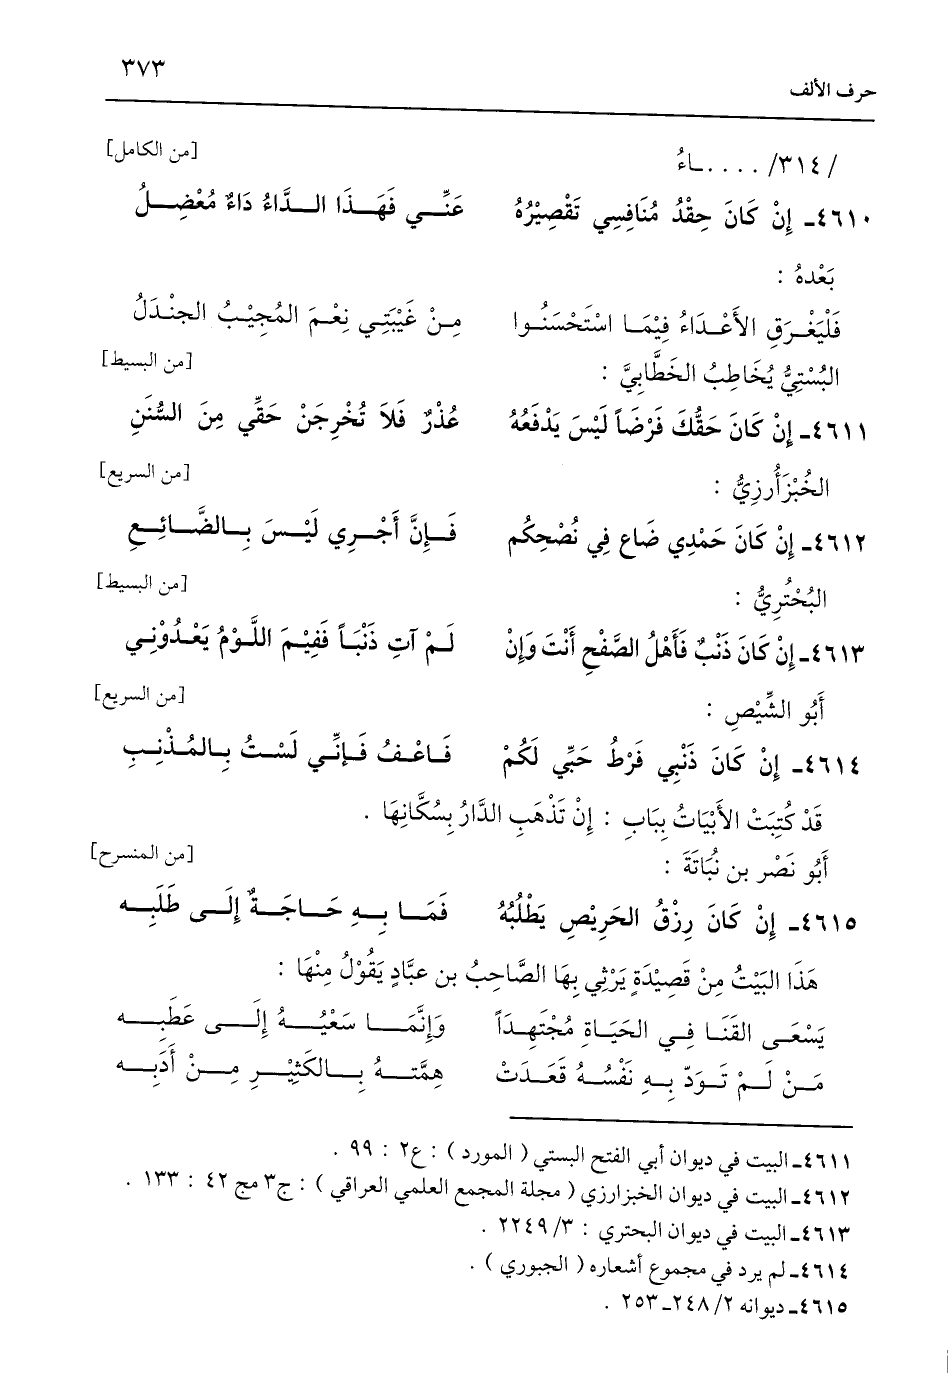 حرف الألف ٣٧٣
/٣١٤/ . . . . ـاءُ [من الكامل]
٤٦١٠ـ إِنْ كَانَ حِقْدُ مُنَافِسِي تَقْصِيْرُهُ عَنِّي فَهَذَا الدَّاءُ دَاءٌ مُعْضِلُ
بَعْدهُ :
فَلْيَغْرَقِ الأَعْدَاءُ فِيْمَا اسْتَحْسَنُوا مِنْ غَيْبَتِي نِعْمَ المُجِيْبُ الجنْدَلُ
البُسْتِيُّ يُخَاطِبُ الخَطَّابِيَّ : [من البسيط]
٤٦١١ـ إِنْ كَانَ حَقُّكَ فَرْضَاً لَيْسَ يَدْفَعُهُ عُذْرٌ فَلاَ تُخْرِجَنْ حَقِّي مِنَ السُّنَنِ
الخُبْزَأُرزِيُّ : [من السريع]
٤٦١٢ـ إِنْ كَانَ حَمْدِي ضَاعَ فِي نُصْحِكُم فَإِنَّ أَجْرِي لَيْسَ بِالضَّائِعِ
البُحْتُرِيُّ : [من البسيط]
٤٦١٣ـ إِنْ كَانَ ذَنْبٌ فَأَهْلُ الصَّفْحِ أَنْتَ وَإِنْ لَمْ آتِ ذَنْبَاً فَفِيْمَ اللَّوْمُ يَعْدُوْنِي
أَبُو الشِّيْصِ : [من السريع]
٤٦١٤ـ إِنْ كَانَ ذَنْبِي فَرْطُ حَبِّي لَكُمْ فَاعْفُ فَإِنِّي لَسْتُ بِالمُذْنِبِ
قَدْ كُتِبَتْ الأَبْيَاتُ بِبَابِ : إِنْ تَذْهَبِ الدَّارُ بِسُكَّانِهَا .
أَبُو نَصْر بن نُبَاتَةَ : [من المنسرح]
٤٦١٥ـ إِنْ كَانَ رِزْقُ الحَرِيْصِ يَطْلُبُهُ فَمَا بِهِ حَاجَةٌ إِلَى طَلَبِه
هَذَا البَيْتُ مِنْ قَصِيْدَةٍ يَرْثِي بِهَا الصَّاحِبُ بن عبَّادٍ يَقُوْلُ مِنْهَا :
يَسْعَى القَنَا فِي الحَيَاةِ مُجْتَهِدَاً وَإِنَّمَا سَعْيُهُ إِلَى عَطَبِه
مَنْ لَمْ تَوَدّ بِهِ نَفْسُهُ قَعَدَتْ هِمَّتهُ بِالكَثِيْرِ مِنْ أَدَبِه
٤٦١١ـ البيت في ديوان أبي الفتح البستي ( المورد ) : ع٢ : ٩٩ .
٤٦١٢ـ البيت في ديوان الخبزارزي ( مجلة المجمع العلمي العراقي ) : ج٣ مج ٤٢ : ١٣٣ .
٤٦١٣ـ البيت في ديوان البحتري : ٣/ ٢٢٤٩ .
٤٦١٤ـ لم يرد في مجموع أشعاره ( الجبوري ) .
٤٦١٥ـ ديوانه ٢/ ٢٤٨ـ ٢٥٣ .